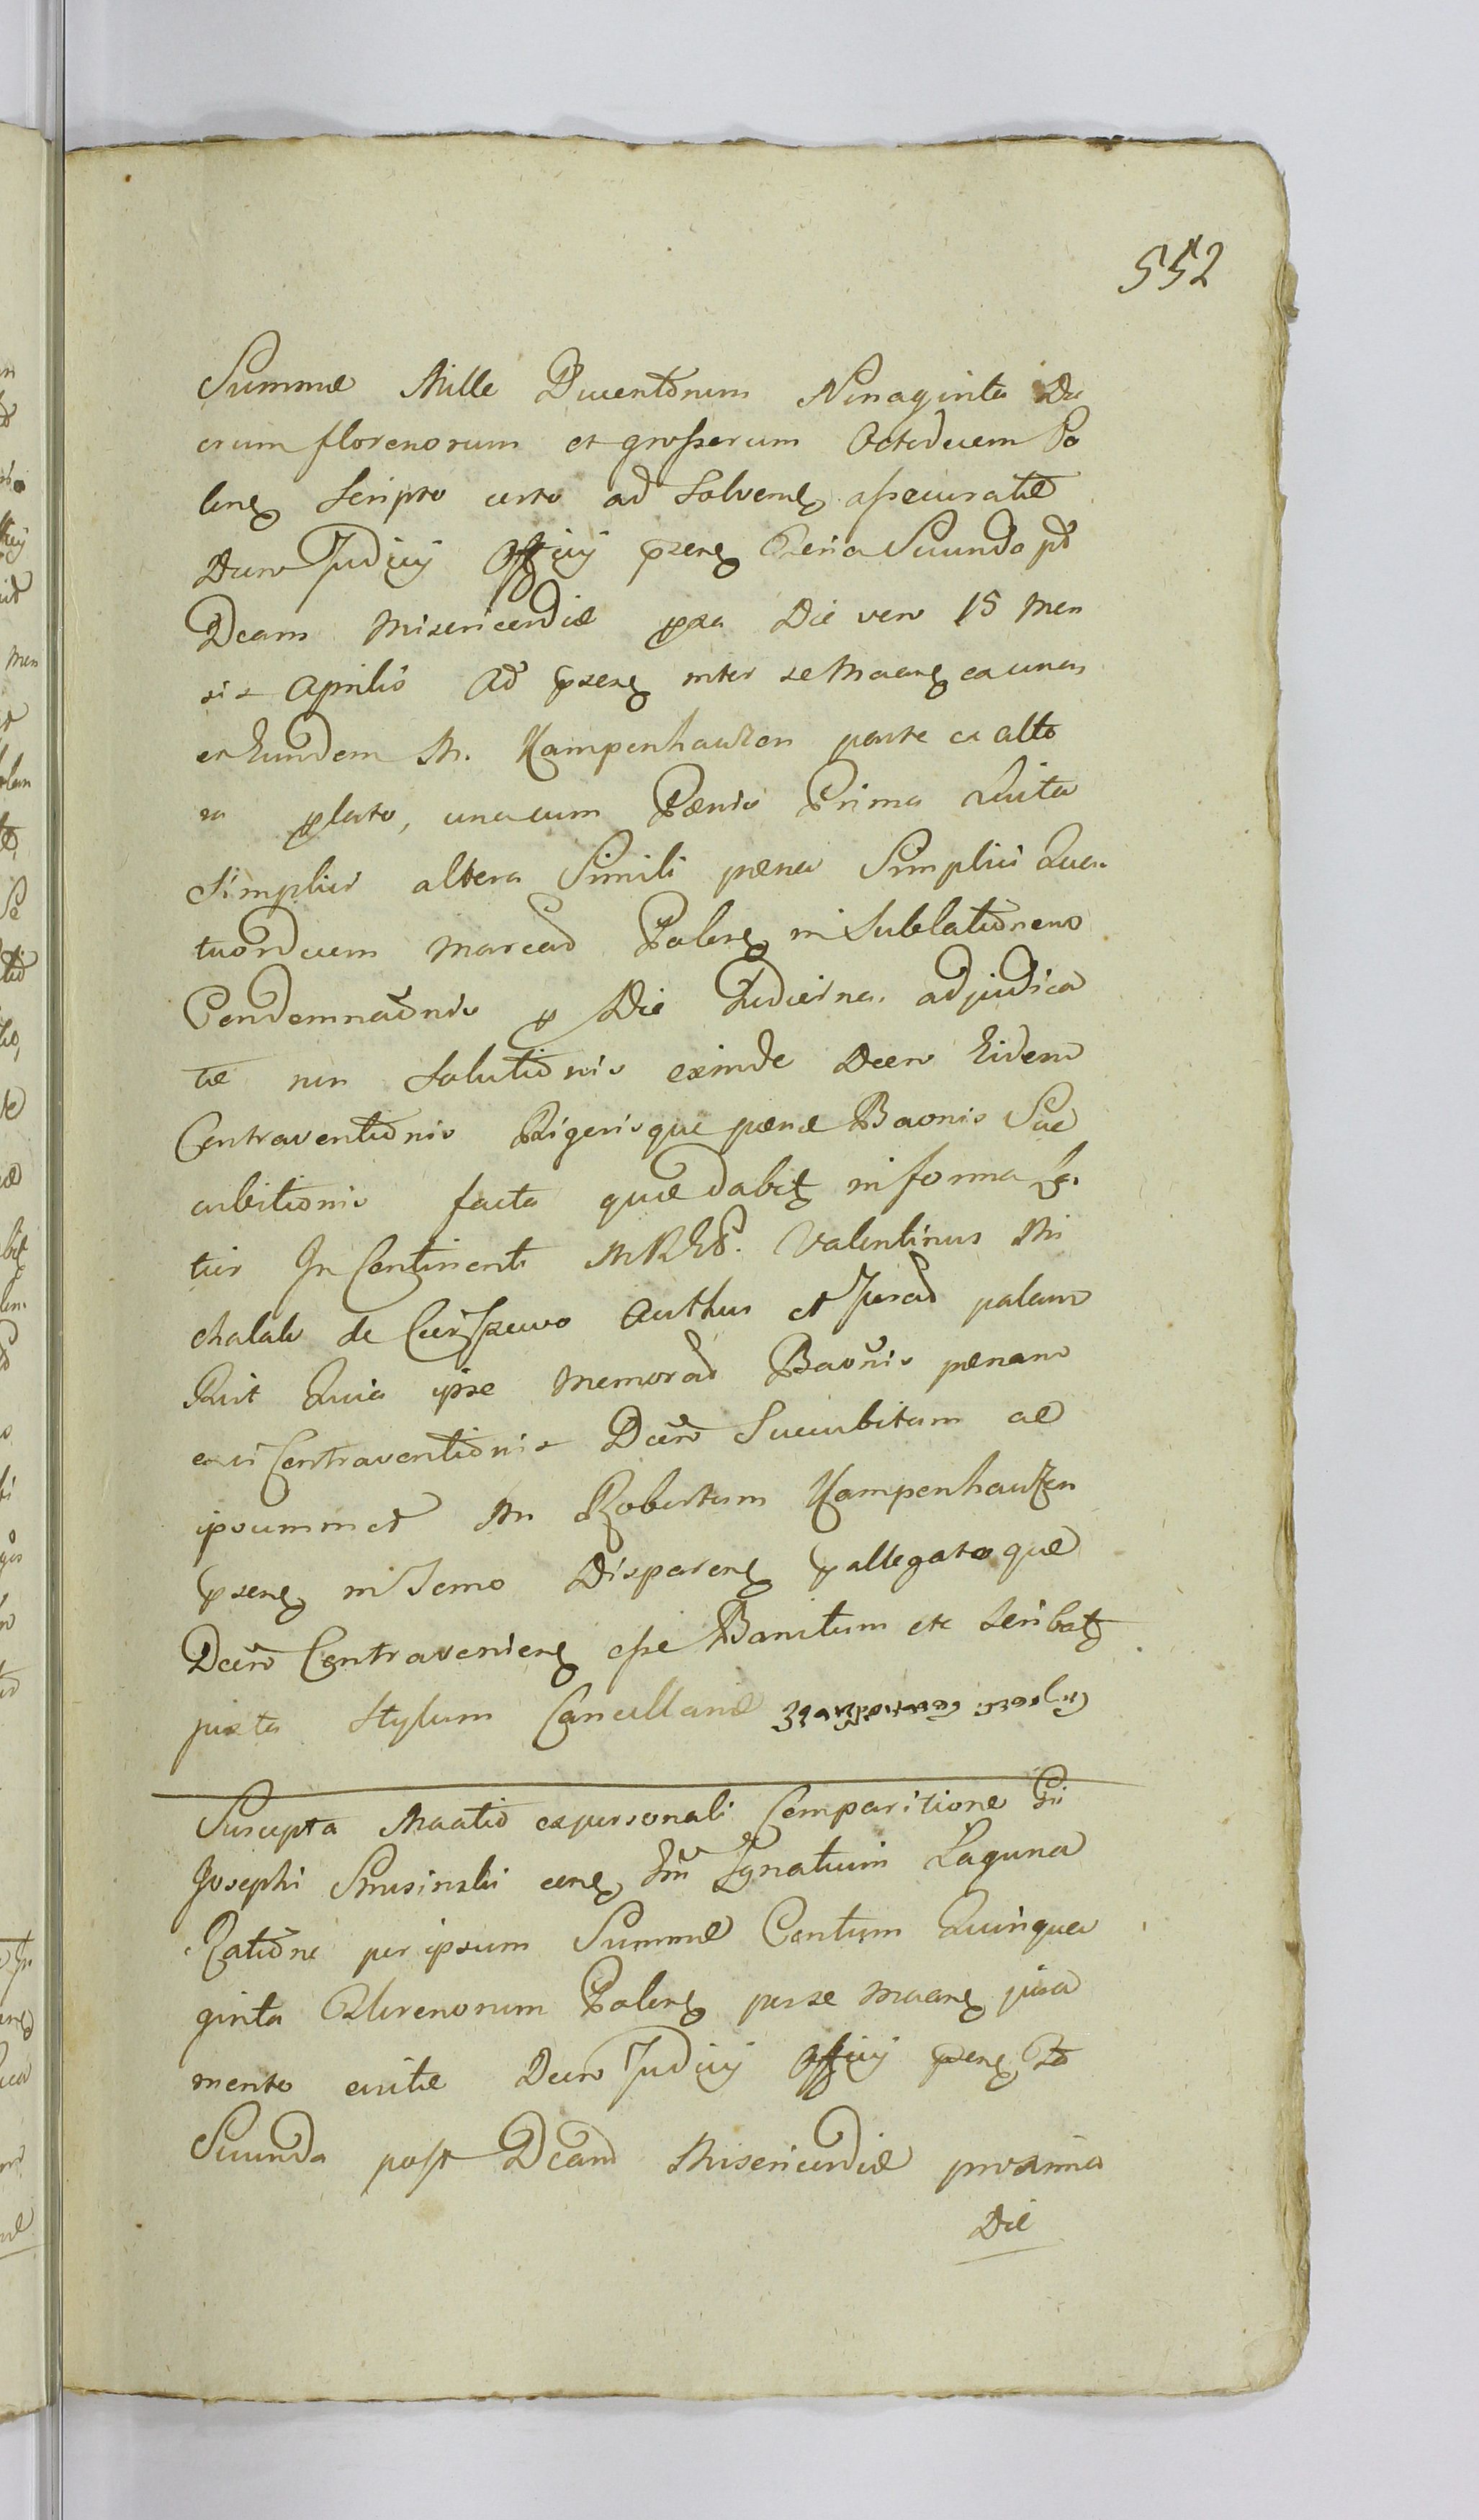 552
Summæ Mille Ducentorum Nonaginta Du
orum florenorum et grossorum Octodecem Po
lonę Scripto certo ad Solvenę assecuratæ
Decro Judicij Officij præsenę Feria Secunda pt
Dcam Misericordiæ pxa Die vero 15 Men
sis Aprilis Ad præsenę inter se Maanę ex una
et Eundem M. Kampenhauzen parte ex alte
ra plato, una cum Pænis Prima Luita
simplici altera Simili pæna Simplici Qua
tuordecem Marcar Polonę in Sublationem
Condemnaonis p Die hodierna adjudica
tæ non Solutionis exinde Decro Eidem
Contraventionis Rigorisque pænæ Baonis Suc
cubitionis facta quæ dabitę in forma Lgi
tur In Continenti MREB. Valentinus Mi
chalski de Cieszewo Authus et Jurad palam
Ruit Quia ipse Memorad Baonis pænam
ex vi Contraventionis Decro Succubitum ac
ipsummet M Robertum Kampenhauzen
præsenę in Termo Disparenę p allegatoque
Decro Contravenienę esse Banitum etc Scribatę
juxta Stylum Cancellariæ
Suscepta Maatio ex personali Comparitione Gsi
Josephi Smusinski cenę Gm Ignatium Laguna
Ratione per ipsum Summæ Centum Quinqua
ginta Florenorum Polonę per se Maanę jura
mento evictæ Decro Judicij Officij præsenę Fa
Secunda post Dcam Misericordiæ proxima
Die